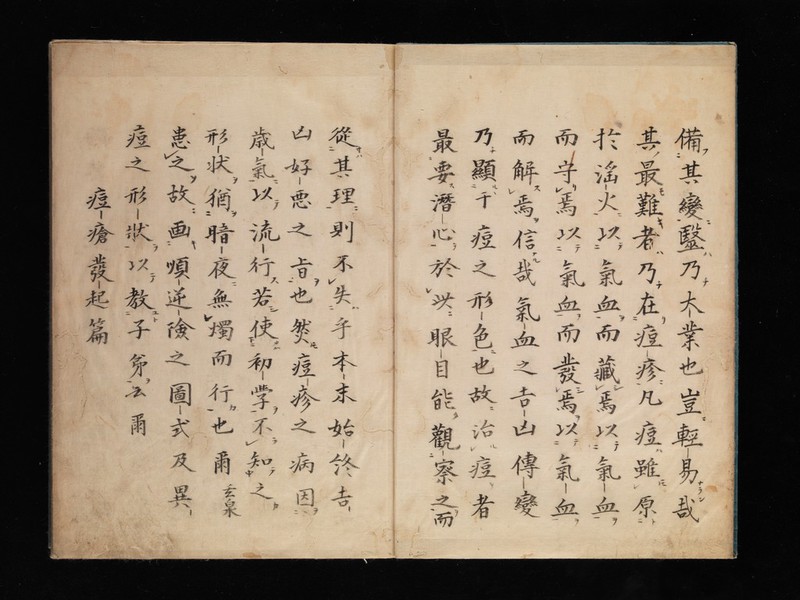 備其變毉乃大業也豈輕易哉
其最難者乃在痘疹凡痘雖原
於淫火以氣血而藏焉以氣血
而守焉以氣血而發焉以氣血
而解焉信哉氣血之吉凶傳變
乃顯于痘之形色也故治痘者
最要潛心於此眼目能觀察之而
從其理則不失乎本末始終吉
凶好悪之旨也然痘疹之病因
歳氣以流行若使初學不知之
形狀猶暗夜無燭而行也爾 玄泉
患之故画順逆險之圖式及異
痘之形狀以教子弟云爾
痘瘡發起篇